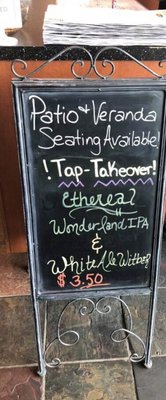 Patio & Veranda
Seating Available!
! Tap-Takeover!
Ethereal
Wonderland IPA
&
White Ale Witbier
$ 3.50